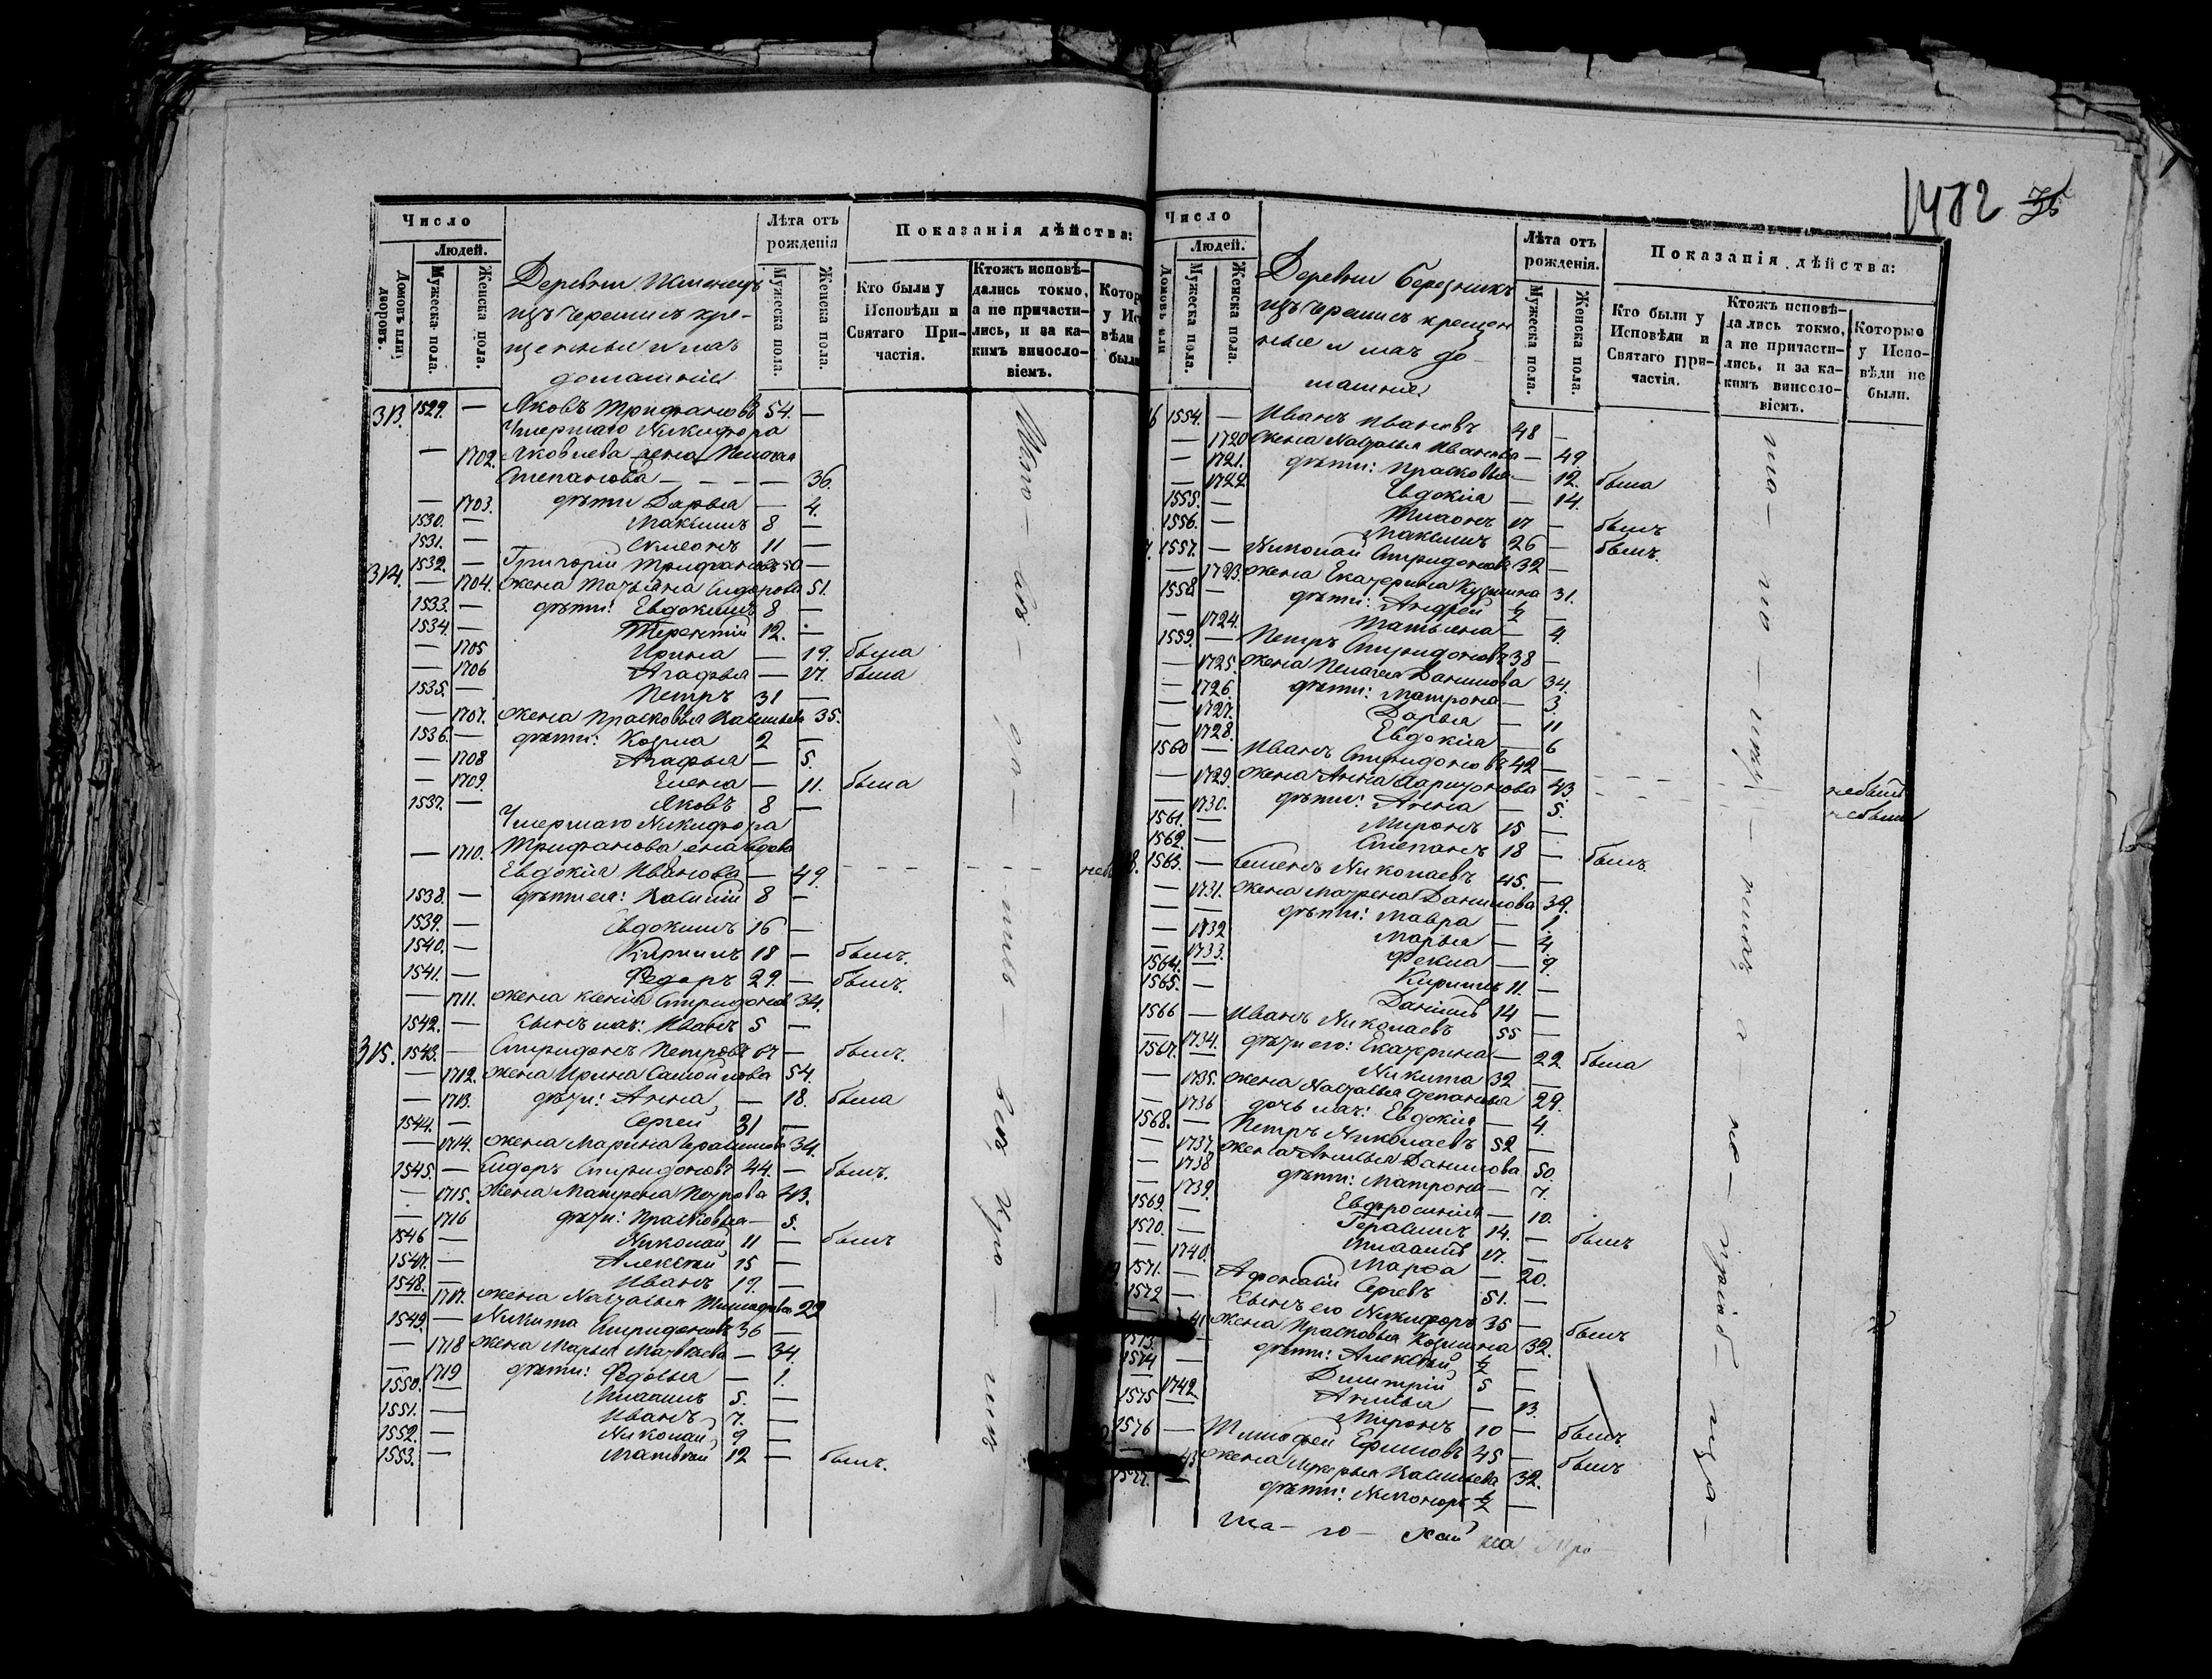 Число
Людей.
Домовъ или дворовъ.
Мужеска пола.
Женска пола.
Деревни
изъ черемисъ кре-
щенные и ихъ
домашніе
Лѣта отъ рожденія
Мужеска пола.
Женска пола.
Показанія дѣйства:
Кто были у Исповѣди и Святаго Причастія.
Ктожъ исповѣдались токмо, а не причастились, и за какимъ винословіемъ.
313. 1529. — Яковъ Трифановъ 54. —
Умершаго Никифора
— 1702. Яковлева жена Пелагея
Степанова — 36.
— 1703. дѣти Дарья — 4.
1530. — Максимъ 8 —
1531. — Симеонъ 11 —
314. 1532. — Григорій Трифановъ 50 —
— 1704. Жена Татьяна Сидорова 51.
1533. — дѣти: Евдокимъ 8 —
1534. — Терентій 12. —
— 1705 Ирина — 19. была
— 1706 Агафья — 27. была
1535. — Петръ 31 —
— 1707. Жена Прасковья Васильева 35.
1536. — дѣти: Козма 2 —
— 1708 Агафья — 5.
— 1709. Елена — 11. была
1537. — Яковъ 8 —
Умершаго Никифора
— 1710. Трифанова жена вдова
Евдокія Иванова — 49.
1538. — дѣти ея: Василій 8 —
1539. — Евдокимъ 16 —
1540. — Кирилъ 18 — былъ.
1541. — Федоръ 29. — былъ.
— 1711. Жена Ксенія Спиридонова 34.
1542. — сынъ ихъ: Иванъ 5 —
315. 1543. — Спиридонъ Петровъ 67 — былъ.
— 1712. Жена Ирина Самойлова 54.
— 1713. дѣти: Анна — 18. была
1544. — Сергей 31 —
— 1714. Жена Марина Герасимова 34.
1545. — Сидоръ Спиридоновъ 44. — былъ.
— 1715. Жена Матрена Петрова 43.
— 1716 дѣти: Прасковья — 5.
1546 — Николай 11 — былъ
1547. — Алексѣй 15 —
1548. — Иванъ 19. —
— 1717. Жена Наталья Тимофеева 22
1549. — Никита Спиридоновъ 36 —
— 1718 Жена Марья Матвѣева — 34.
— 1719 дѣти: Федосья — 1.
1550. — Михаилъ 5. —
1551. — Иванъ 7. —
1552. — Николай 9 —
1553. — Матвѣй 12 — былъ.
1482
Число
Людей.
Домовъ или
Мужеска пола.
Женска пола.
Деревни Березникъ
изъ черемисъ крещен
ные и ихъ до-
машніе
Лѣта отъ рожденія.
Мужеска пола.
Женска пола.
Показанія дѣйства:
Кто были у Исповѣди и Святаго Причастія.
Ктожъ исповѣдались токмо, а не причастились, и за какимъ винословіемъ.
Которые у Исповѣди не были.
6 1554. — Иванъ Ивановъ 48 —
— 1720 Жена Наталья Иванова — 49.
— 1721. дѣти: Прасковья — 12. была
— 1722 Евдокія — 14.
1555. — 17 — былъ
1556. — Максимъ 26 — былъ.
7. 1557. — Николай Спиридоновъ 32 —
— 1723. Жена Екатерина Кузмина 31.
1558 — дѣти: Андрей ½ —
— 1724. Татьяна — 4.
1559. — Петръ Спиридоновъ 38 —
— 1725. Жена Пелагея Данилова 34.
— 1726. дѣти: Матрона — 3.
— 1727. Дарья — 11
— 1728. Евдокія — 6
1560 — Иванъ Спиридоновъ 42 — небылъ
— 1729. Жена Анна Ларионова 43. небыла
— 1730. дѣти: Анна — 5.
1561. — Миронъ 15 —
1562. — Степанъ 18 — былъ.
8. 1563. — Семенъ Николаевъ 45. —
— 1731. Жена Матрена Данилова 39.
— — дѣти: Мавра — 1.
— 1732 Марья — 4.
— 1733. Фекла — 9.
1564. — Кирилъ 11. —
1565. — Даніилъ 14 —
1566 — Иванъ Николаевъ 55 —
— 1734. дѣти его: Екатерина — 22. была
1567. — Никита 32 —
— 1735. Жена Наталья Степанова 29.
— 1736 дочь ихъ: Евдокія — 4.
1568. — Петръ Николаевъ 52 —
— 1737. Жена Анисья Данилова 50.
— 1738 дѣти: Матрона — 7.
— 1739. Евфросинія — 10.
1569. — Герасимъ 14. — былъ
1570. — Михаилъ 17. —
— 1740. Марфа — 20.
1571. — Афонасій Сергевъ 51. —
1572 — Сынъ его Никифоръ 35 — былъ
Жена Прасковья Козмина 32.
1573. — дѣти: Алексѣй ½ —
1574 — Димитрій 5 —
— 1742 Анисья — 13.
1575 — Миронъ 10 — былъ.
1576 — Тимофей Ефимовъ 45 — былъ
Жена Марья Васильева 32.
1577. — дѣти: Никоноръ ½ —